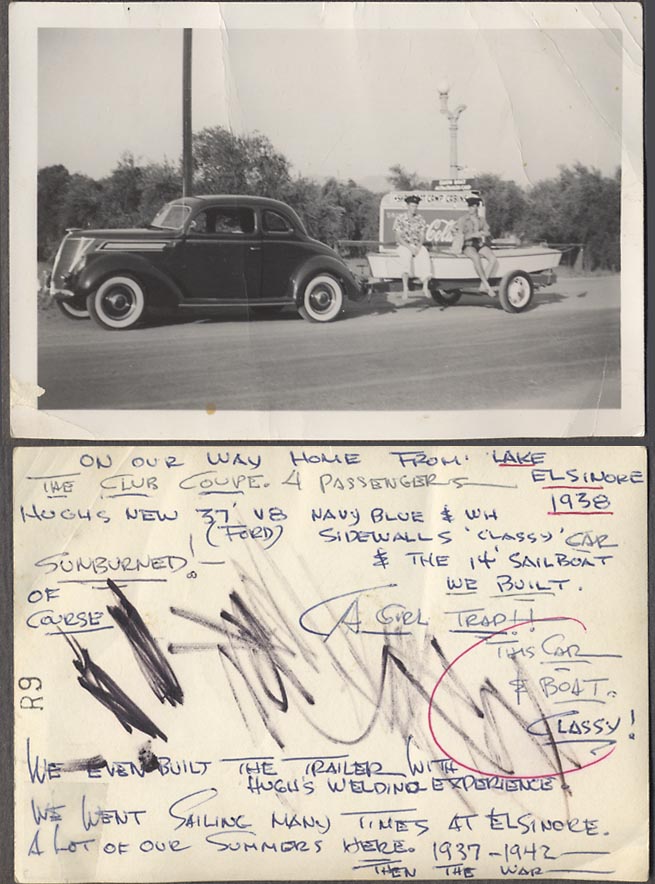 CAMP CABINS
Coca-Cola
ON OUR WAY HOME FROM LAKE
ELSINORE
1938
THE CLUB COUPE. 4 PASSENGERS
HUGHS NEW 37' V8 NAVY BLUE & WH
(FORD) SIDEWALLS 'CLASSY' CAR
& THE 14' SAILBOAT
WE BUILT.
SUNBURNED!
OF
COURSE
A GIRL TRAP!!
THIS CAR
& BOAT.
CLASSY!
R9
WE EVEN BUILT THE TRAILER WITH
HUGH'S WELDING EXPERIENCE.
WE WENT SAILING MANY TIMES AT ELSINORE.
A LOT OF OUR SUMMERS HERE. 1937-1942
THEN THE WAR